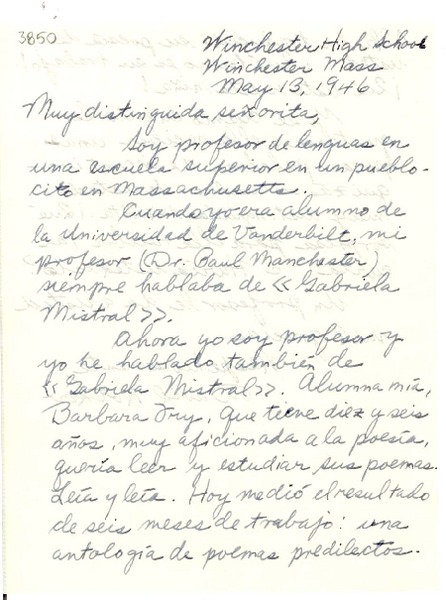 3850
Winchester High School
Winchester Mass
May 13, 1946
Muy distinguida señorita,
Soy profesor de lenguas en
una escuela superior en un pueblo-
cito en Massachusetts.
Cuando yo era alumno de
la Universidad de Vanderbilt, mi
profesor (Dr. Paul Manchester)
siempre hablaba de << Gabriela
Mistral >>.
Ahora yo soy profesor y
yo he hablado también de
<< Gabriela Mistral >>. Alumna mía,
Barbara Fry, que tiene diez y seis
años, muy aficionada a la poesía,
quería leer y estudiar sus poemas.
Leía y leía. Hoy me dió el resultado
de seis meses de trabajo: una
antología de poemas predilectos.